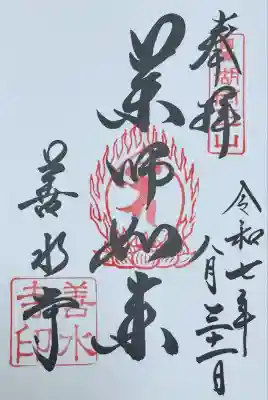 奉拝
令和七年八月三十一日
薬師如来
善水寺
善水
寺印